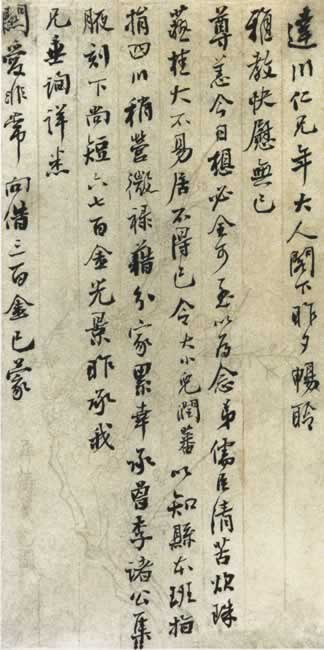 達川仁兄年大人閣下昨夕暢聆
雅教快慰無已
尊恙今日想必全可至以為念弟儒臣清苦炊珠
薪桂大不易居不得已令大小兒潤蕃以知縣本班指
捐四川稍營微祿藉分家累幸承曾季諸公集
腋刻下尚短六七百金光景昨承我
兄垂詢詳悉
關愛非常向借三百金已蒙